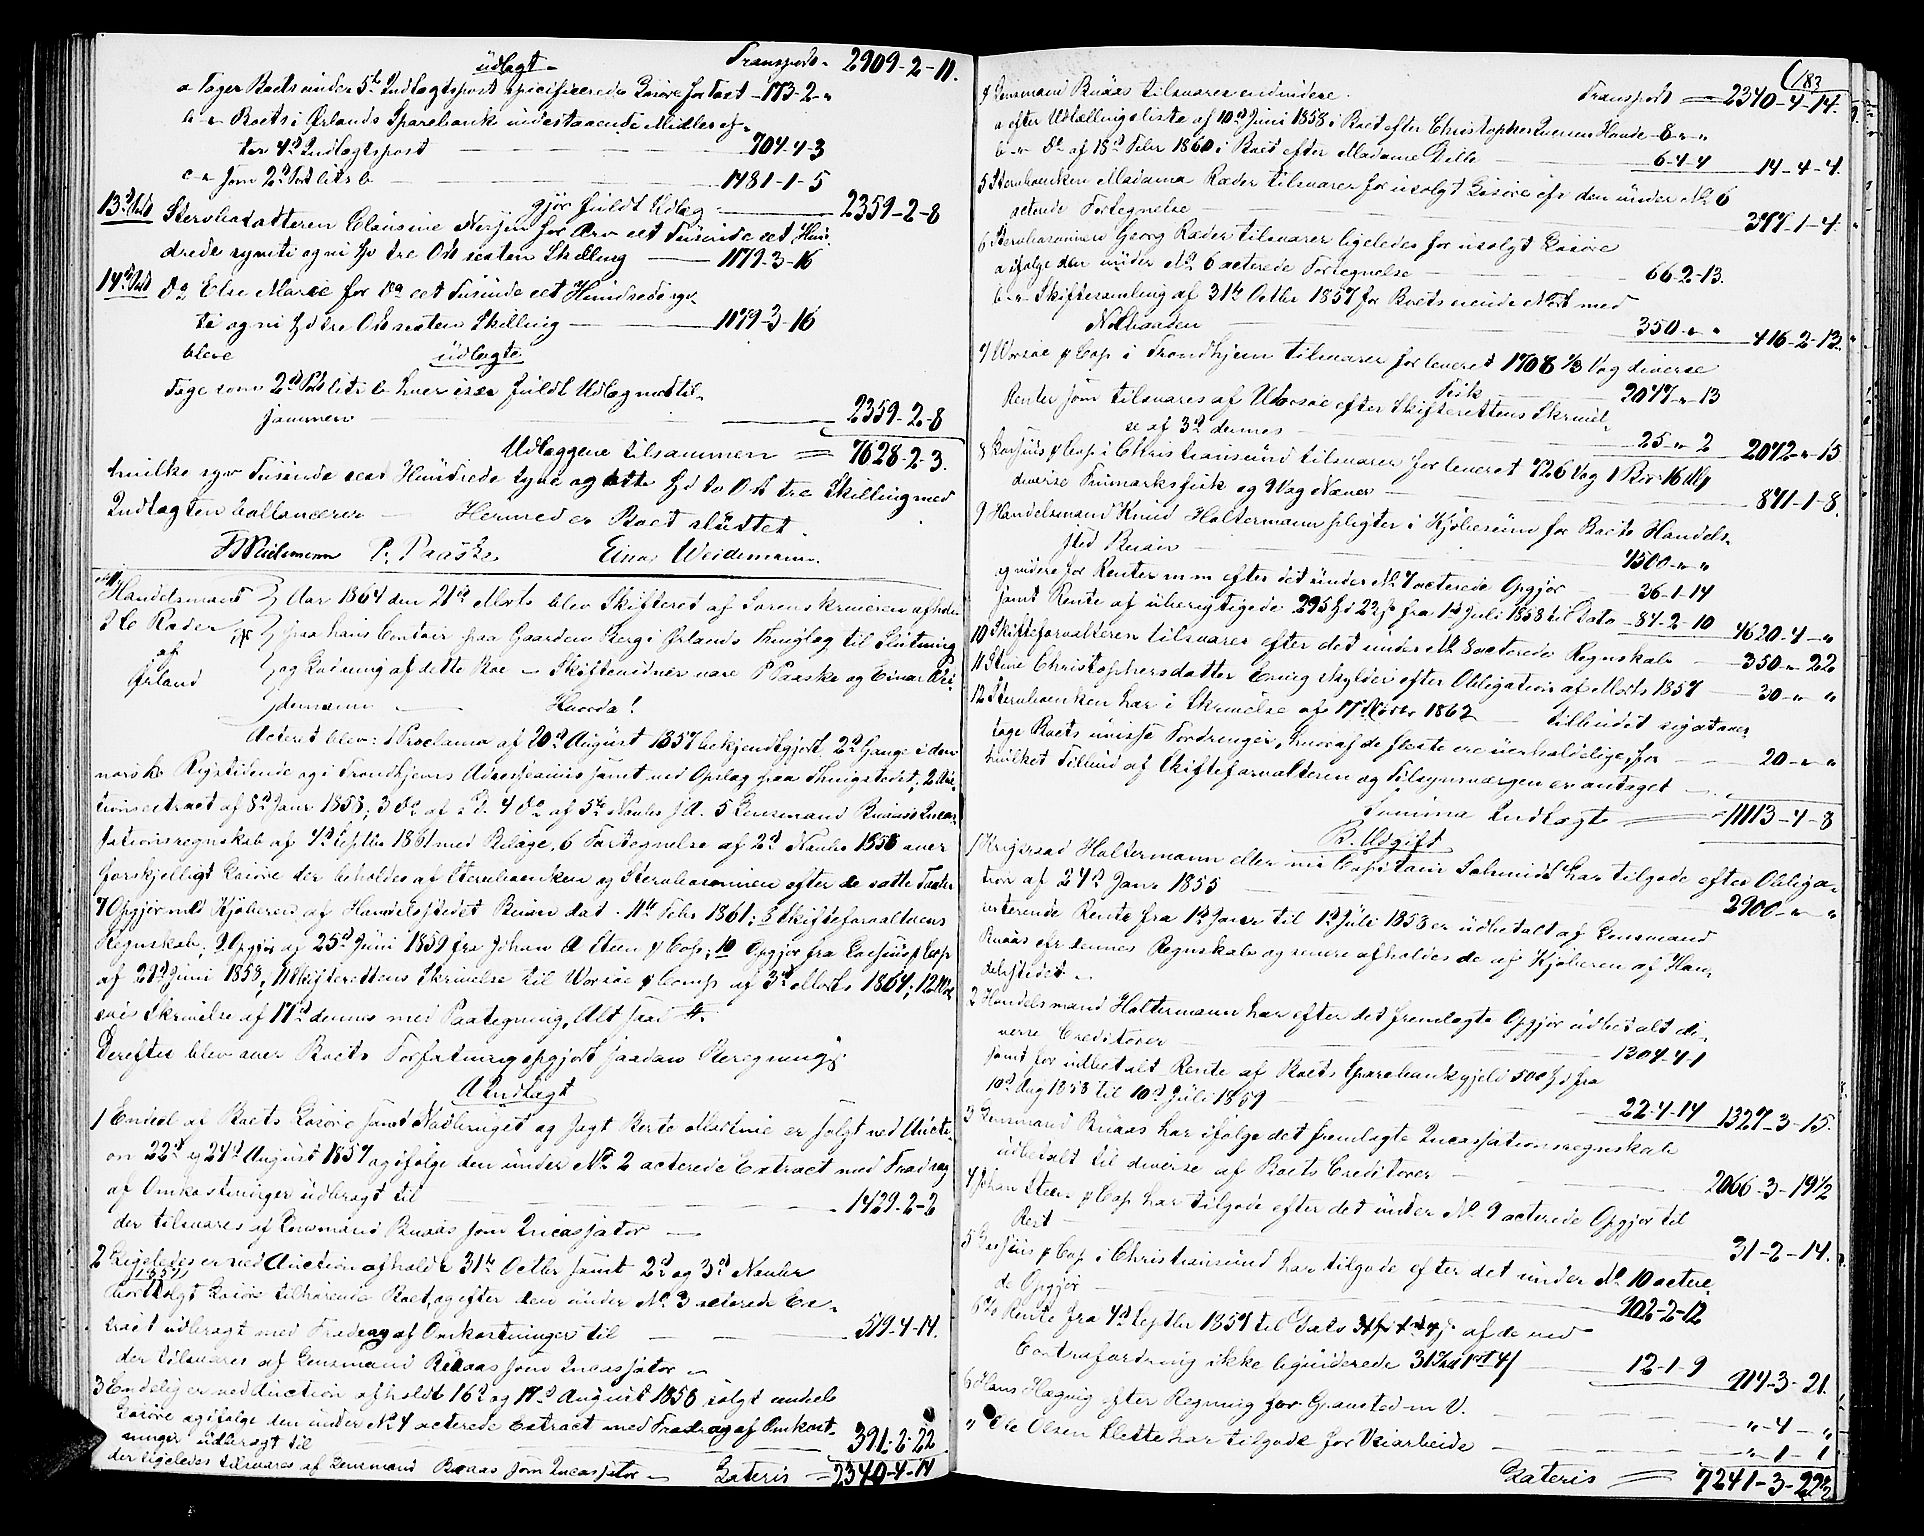 Transport - 2909-2-11.
üdlagt -
a Tager Boets under 5te Indtægtspost specificerede Løsøre for Taxt - 173-2-"
b - Boets i Ørlands Sparebank indestaaende Midler ef-
ter 4de Indtægtspost - 704-4-3
c - Jorn 2d Post litr b - 1481-1-5
gjør fuldt Udlæg - 2359-2-8
13de Post Stervbodatteren Clausine Nesjen for Arv eet Tusinde eet Hun-
drede sytti og ni Spd tre Ort sexten Skilling - 1179-3-16
14de Post Do Else Marie for Do eet Tusinde eet Hundrede syt-
ti og ni Spd tre Ort sexten Skilling - 1179-3-16
bleve
üdlagte
lige som 2d Post litr b hver især fuldt Udlæg med til-
sammen - 2359-2-8
Udlæggene tilsammen = 7628-2-3.
hvilke syv Tusinde sex Hundrede tyve og otte Spd to Ort tre Skilling med
Indtægten ballancerer - Hermed er Boet sluttet.
P. Paaske Einar Weidemann.
Handelsmand Aar 1864 den 21de Marts blev Skifteret af Sorenskriveren afholdt
Ræder paa hans Contoir paa Gaarden Berg i Ørlands Thinglag til Slutning
af og Lodning af dette Boe - Skiftevidner vare P Paaske og Einar Wei-
Ørland demann - Hvorda!
Acteret blev: 1 Proclama af 20de August 1857 bekjendtgjort 2de Gange i den
norske Rigstidende og i Trondhjems Adresseavis samt ved Opslag paa Thingstedet; 2 Auc-
tionsextract af 8de Janr 1858; 3 Do af s.D. 4 Do af 5te Novbr s.A. 5 Lensmand Ruaas Incas-
sationsregnskab af 4de Septbr 1861 med Belæge, 6 Fortegnelse af 2d Novbr 1858 over
forskjelligt Løsøre der beholdes af Stervboenken og Stervbosønnen efter de satte Taxter
7 Opgjør med Kjøberen af Handelsstedet Beian dat. 11te Febr 1861; 8 Skifteforvalterens
Regnskab; 9 Opgjør af 25de Juni 1859 fra Johan A Steen & Cop; 10 Opgjør fra & Cop
af 21de Juni 1858; 11 Skifterettens Skrivelse til Worsøe & Comp af 3de Marts 1864; 12 Wor-
søes Skrivelse af 17de dennes med Paategning, Alt saal.
Derefter blev over Boets Forfatning opgjort saadan Beregning:
A Indtægt
1 Endeel af Boets Løsøre samt Nødbruget og Jagt Berte Martine er solgt ved Aucti-
on 22de og 24de August 1857 og ifølge den under No 2 acterede Extract med Fradrag
af Omkostninger udbragt til - 1429-2-2
der tilsvares af Lensmand Ruaas som Incassator -
2 Ligeledes er ved Auction afholdt 31te Octbr samt 2de og 3de Novbr
1857 bortsolgt Løsøre tilhørende Boet, og efter den under No 3 acterede Ex-
tract udbragt med Fradrag af Omkostninger til - 519-4-14.
der tilsvares af Lensmand Ruaas som Incassator -
3 Endelig er ved Auction afholdt 16de og 17de August 1858 solgt endeel
Løsøre og ifølge den under No 4 acterede Extract med Fradrag af Omkost-
ninger udbragt til - 391-2-22
der ligeledes tilsvares af Lensmand Ruaas som Incassator - Lateris - 2340-4-14
183
Transport = 2340-4-14.
4 Lensmand Ruaas tilsvarer endvidere.
a efter Udtællingsliste af 10de Juni 1858 i Boet efter Christopher Iversen Hovde - 8-"-"
b - Do af 18de Febr 1860 i Boet efter Madame Dille - 6-4-4 14-4-4.
5 Stervboenken Madame Ræder tilsvarer for usolgt Løsøre efr den under No 6
acterede Fortegnelse - 377-1-4.
6 Stervbosønnen Georg Ræder tilsvarer ligeledes for usolgt Løsøre
a ifølge den under No 6 acterede Fortegnelse - 66-2-13.
b - Skiftesamling af 31te Octbr 1857 for Boets eiende Nort med
Notbaaden - 350-"-" 416-2-13.
7 Worsøe & Cop i Trondhjem tilsvarer for leveret 1708 1/3 Vog diverse
Fisk - 2047-"-13
Renter som tilsvares af Worsøe efter Skifterettens Skrivel-
se af 3de dennes - 25-"-2 2072-"-15
8 & Cop i Christiansund tilsvarer for leveret 726 Vog 1 Bpd 16 Mk
diverse Finmarksfisk og 9 Vog Næver - 871-1-8.
9 Handelsmand Knud Holtermann pligter i Kjøbesum for Boets Handels-
sted Beian - 4500-"-"
og videre for Renter m m efter det under No 7 acterede Opgjør - 36-1-14
samt Rente af uberigtigede 295 Spd 22 s fra 1de Juli 1858 til Dato - 84-2-10 4620-4-"
10 Skifteforvalteren tilsvarer efter det under No 8 acterede Regnskab - 350-"-22
11 Stine Christophersdatter Eming skylder efter Obligation af Marts 1857 - 30-"-"
12 Stervboenken har i Skrivelse af 17 Novbr 1862 - tilbudt sig at mod-
tage Boets uvisse Fordringer, hvoraf de fleste ere uerholdelige for - 20-"-"
hvilket Tilbud af Skifteforvalteren og Tilsynsværgen er antaget -
Summa Indtægt - 11113-4-8
B. Udgift
1 Krigsraad Holtermann eller nu Capitain Schmidt har tilgode efter Obliga-
tion af 24de Janr 1855 - 2900-"-"
resterende Rente fra 1de Janr til 1de Juli 1858 er udbetalt af Lensmand
Ruaas efr dennes Regnskab og senere afholdes de af Kjøberen af Han-
delsstedet -
2 Handelsmand Holtermann har efter det fremlagte Opgjør udbetalt di-
verse Creditorer - 1304-4-1
samt for udbetalt Rente af Boets Sparebankgjeld 500 Spd fra
10de Aug 1858 til 10de Juli 1859 - 22-4-14 1327-3-15.
3 Lensmand Ruaas har ifølge det fremlagte Incassationsregnskab
udbetalt til diverse af Boets Creditorer - 2066-3-19½
4 Johan Steen & Cop har tilgode efter det under No 9 acterede Opgjør til
Rest - 31-2-14.
5 & Cop i Christiansund har tilgode efter det under No 10 actere-
de Opgjør - 902-2-12
6 % Rente fra 4de Septbr 1857 til Dato af de ved
Contrafordring ikke liqviderede 31 Spd 1 ort 4 s - 12-1-9 914-3-21.
6 Hans Hegvig efter Regning for Gravsted m. V. - "-4-"
" Ole Olsen Slette har tilgode for Veiarbeide - "-1-1
Lateris = 7241-3-22½